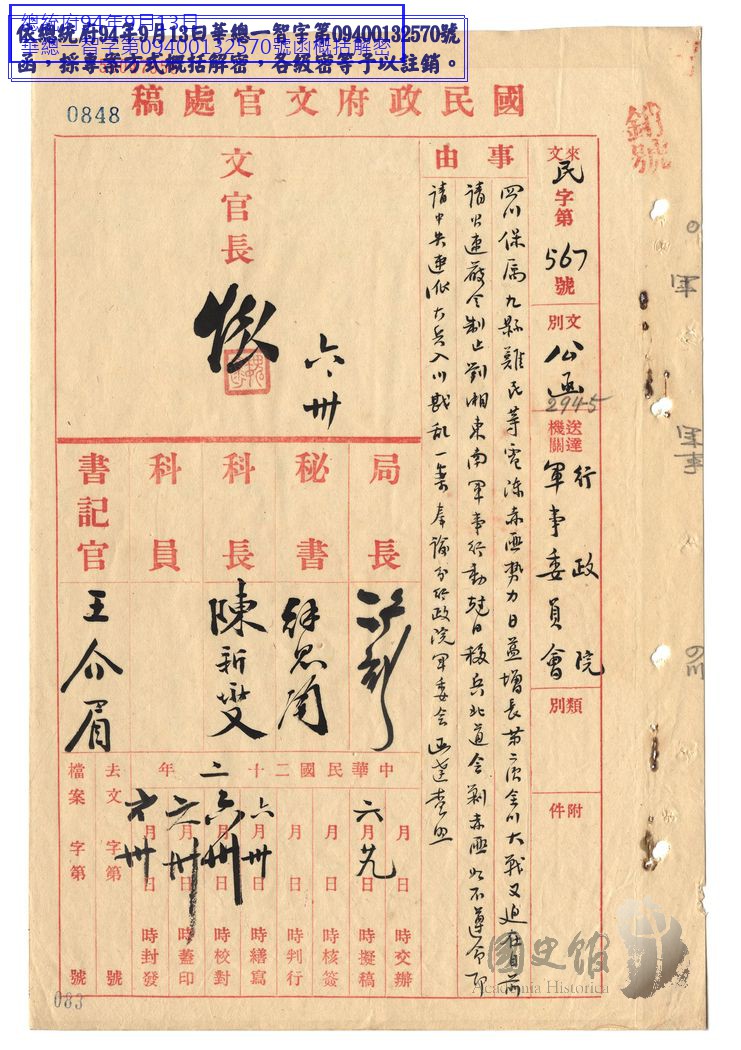 總統府94年9月13日
華總一智字第09400132570號函概括解密
依總統府94年9月13日華總一智字第09400132570號
函，採專案方式概括解密，各級密等予以註銷。
0848
國民政府文官處稿
銷號
來文 民字第567號
文別 公函
2945
送達機關 行政院
軍事委員會
類別
附件
事由
四川保属九縣難民等電陳赤匪勢力日益增長第二次全川大戰又迫在目前
請火速嚴令制止劉湘東南軍事行動尅日移兵北道会剿赤匪如不遵令即
請中央速派大兵入川戡乱一案奉諭分行政院軍委会函達查照
文官長
六、卅
局長
秘書
科長 陳新燮
科員
書記官 王介眉
中華民國二十二年
月 日 時交辦
六月廿九日 時擬稿
月 日 時核簽
月 日 時判行
六月卅日 時繕寫
六月卅日 時校對
六月卅日 時蓋印
六月卅日 時封發
去文 字第 號
檔案 字第 號
083
軍
軍事
四川
國史館
Academia Historica